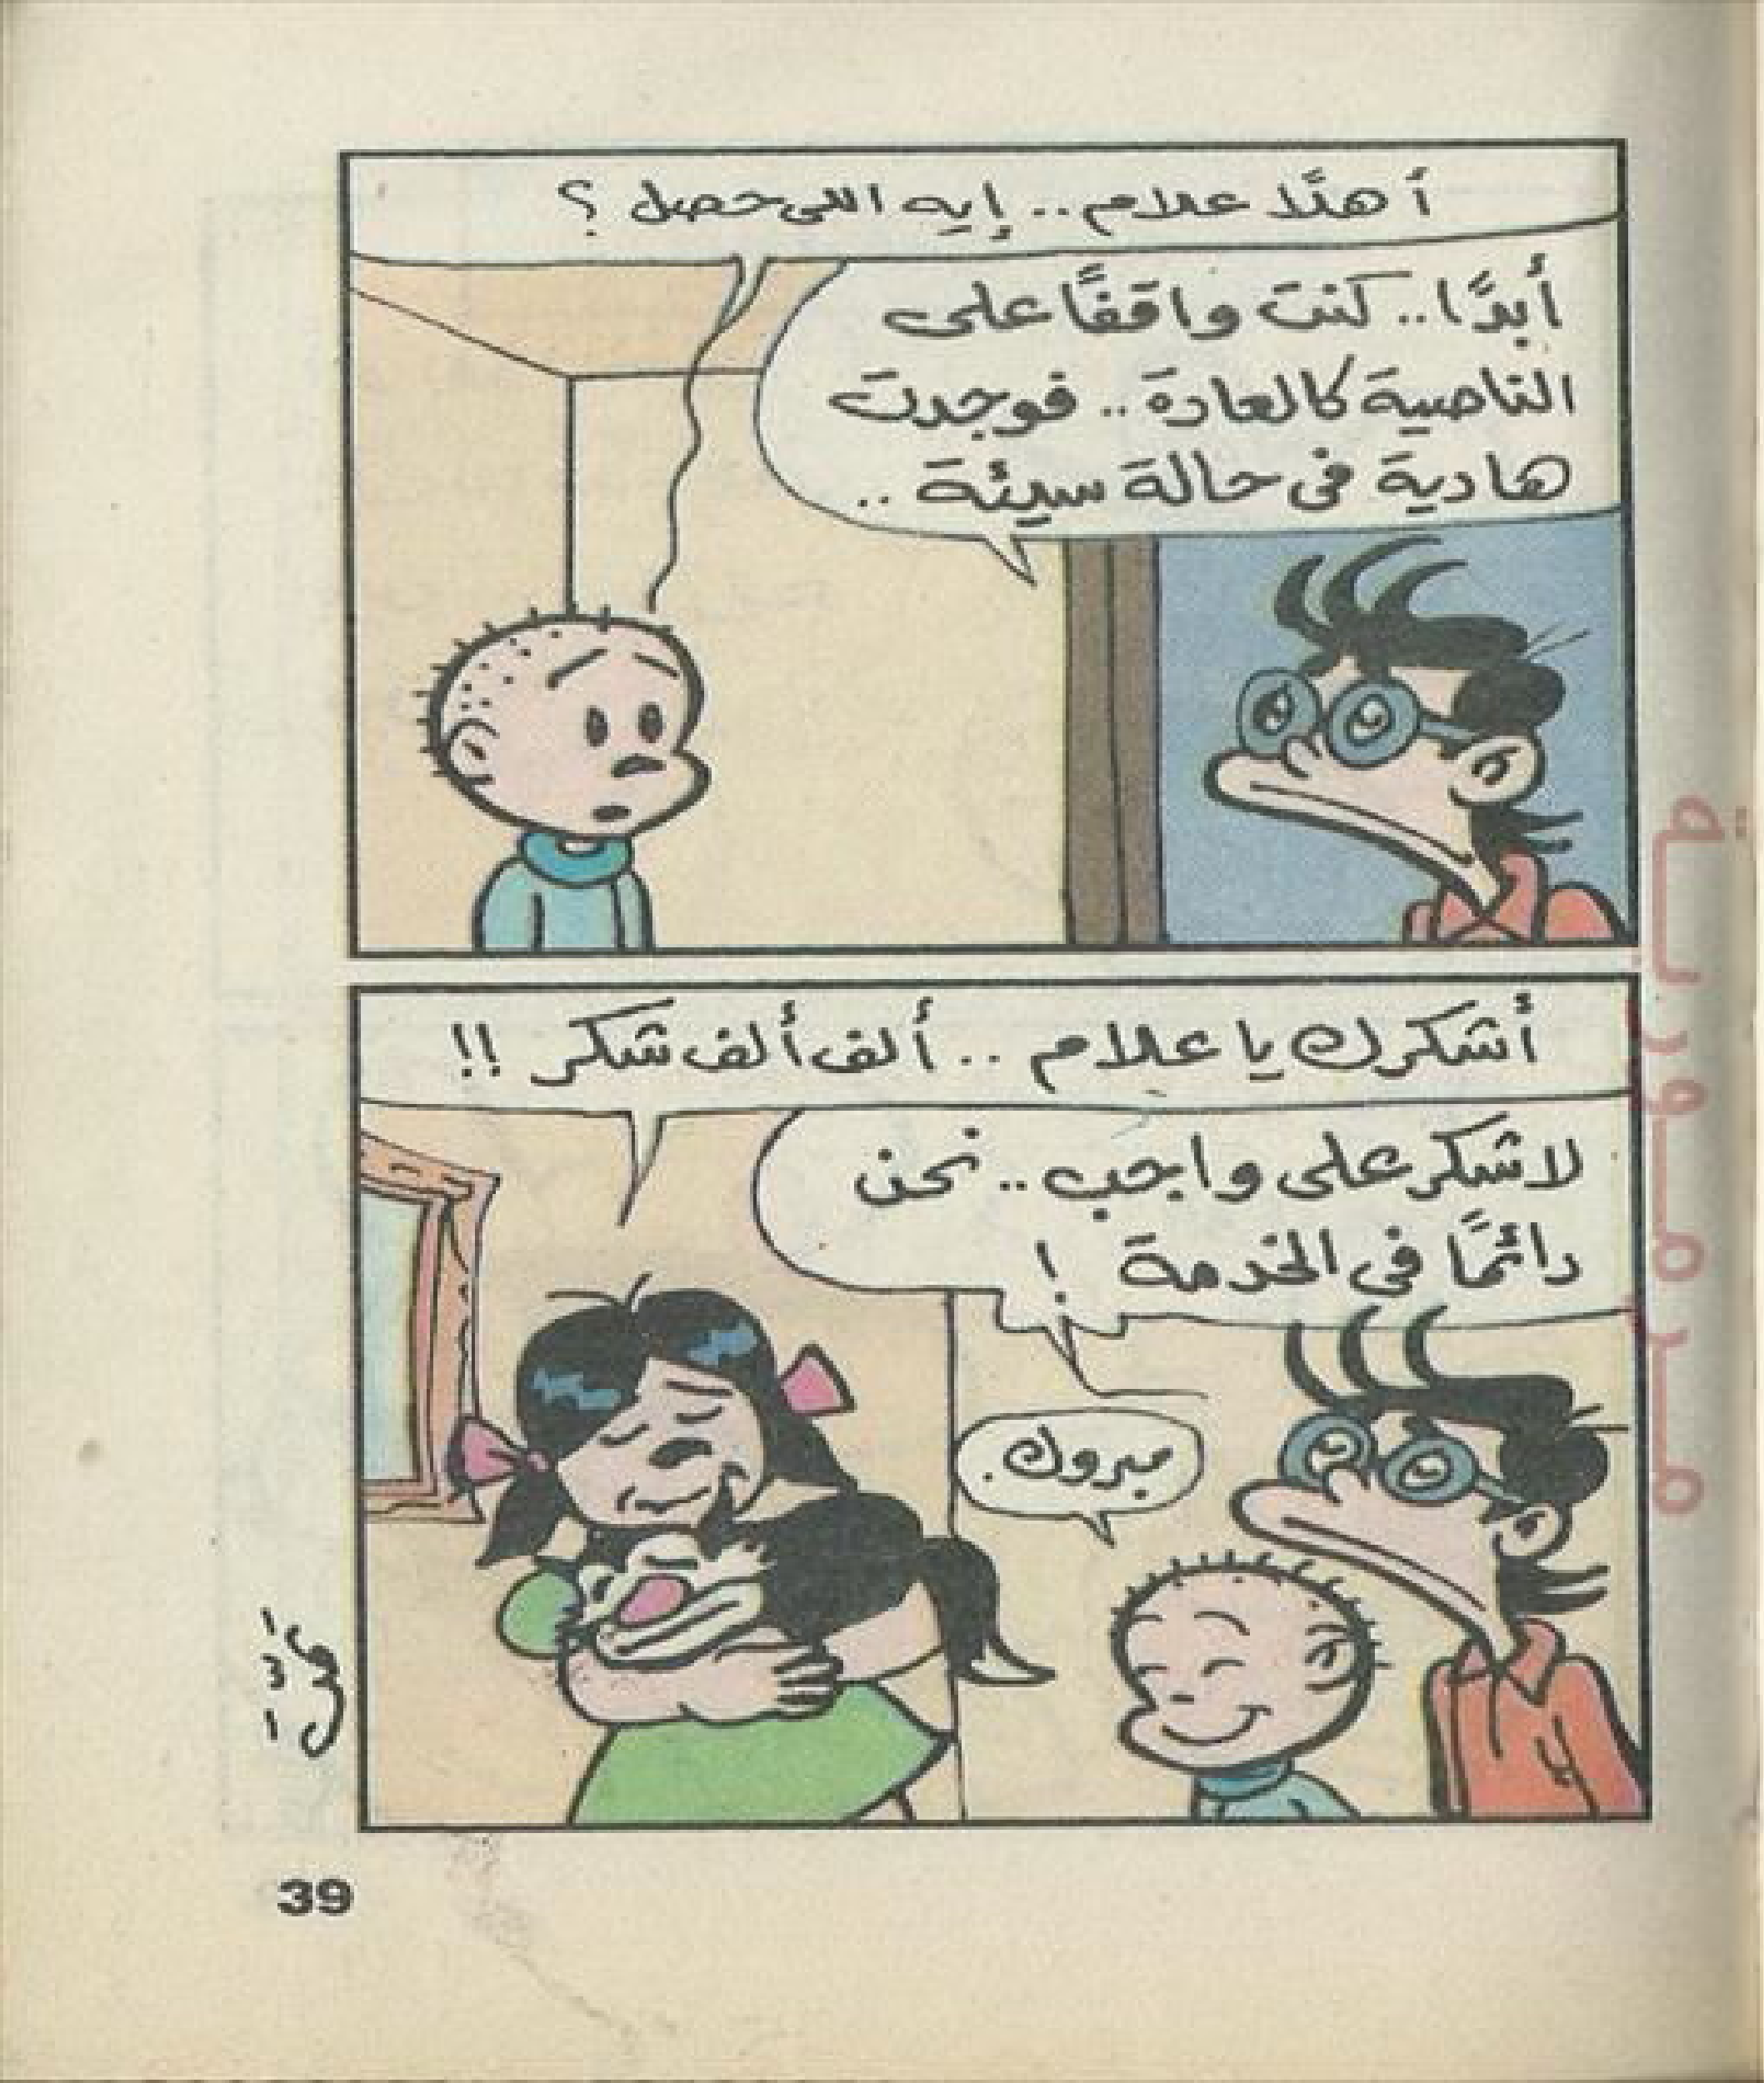 أهلًا علام.. إيه اللى حصل ؟
أبدًا.. كنت واقفًا على
الناصية كالعادة.. فوجدت
هادية فى حالة سيئة ..
أشكرك يا علام .. ألف ألف شكر !!
لا شكر على واجب.. نحن
دائمًا فى الخدمة !
مبروك.
39